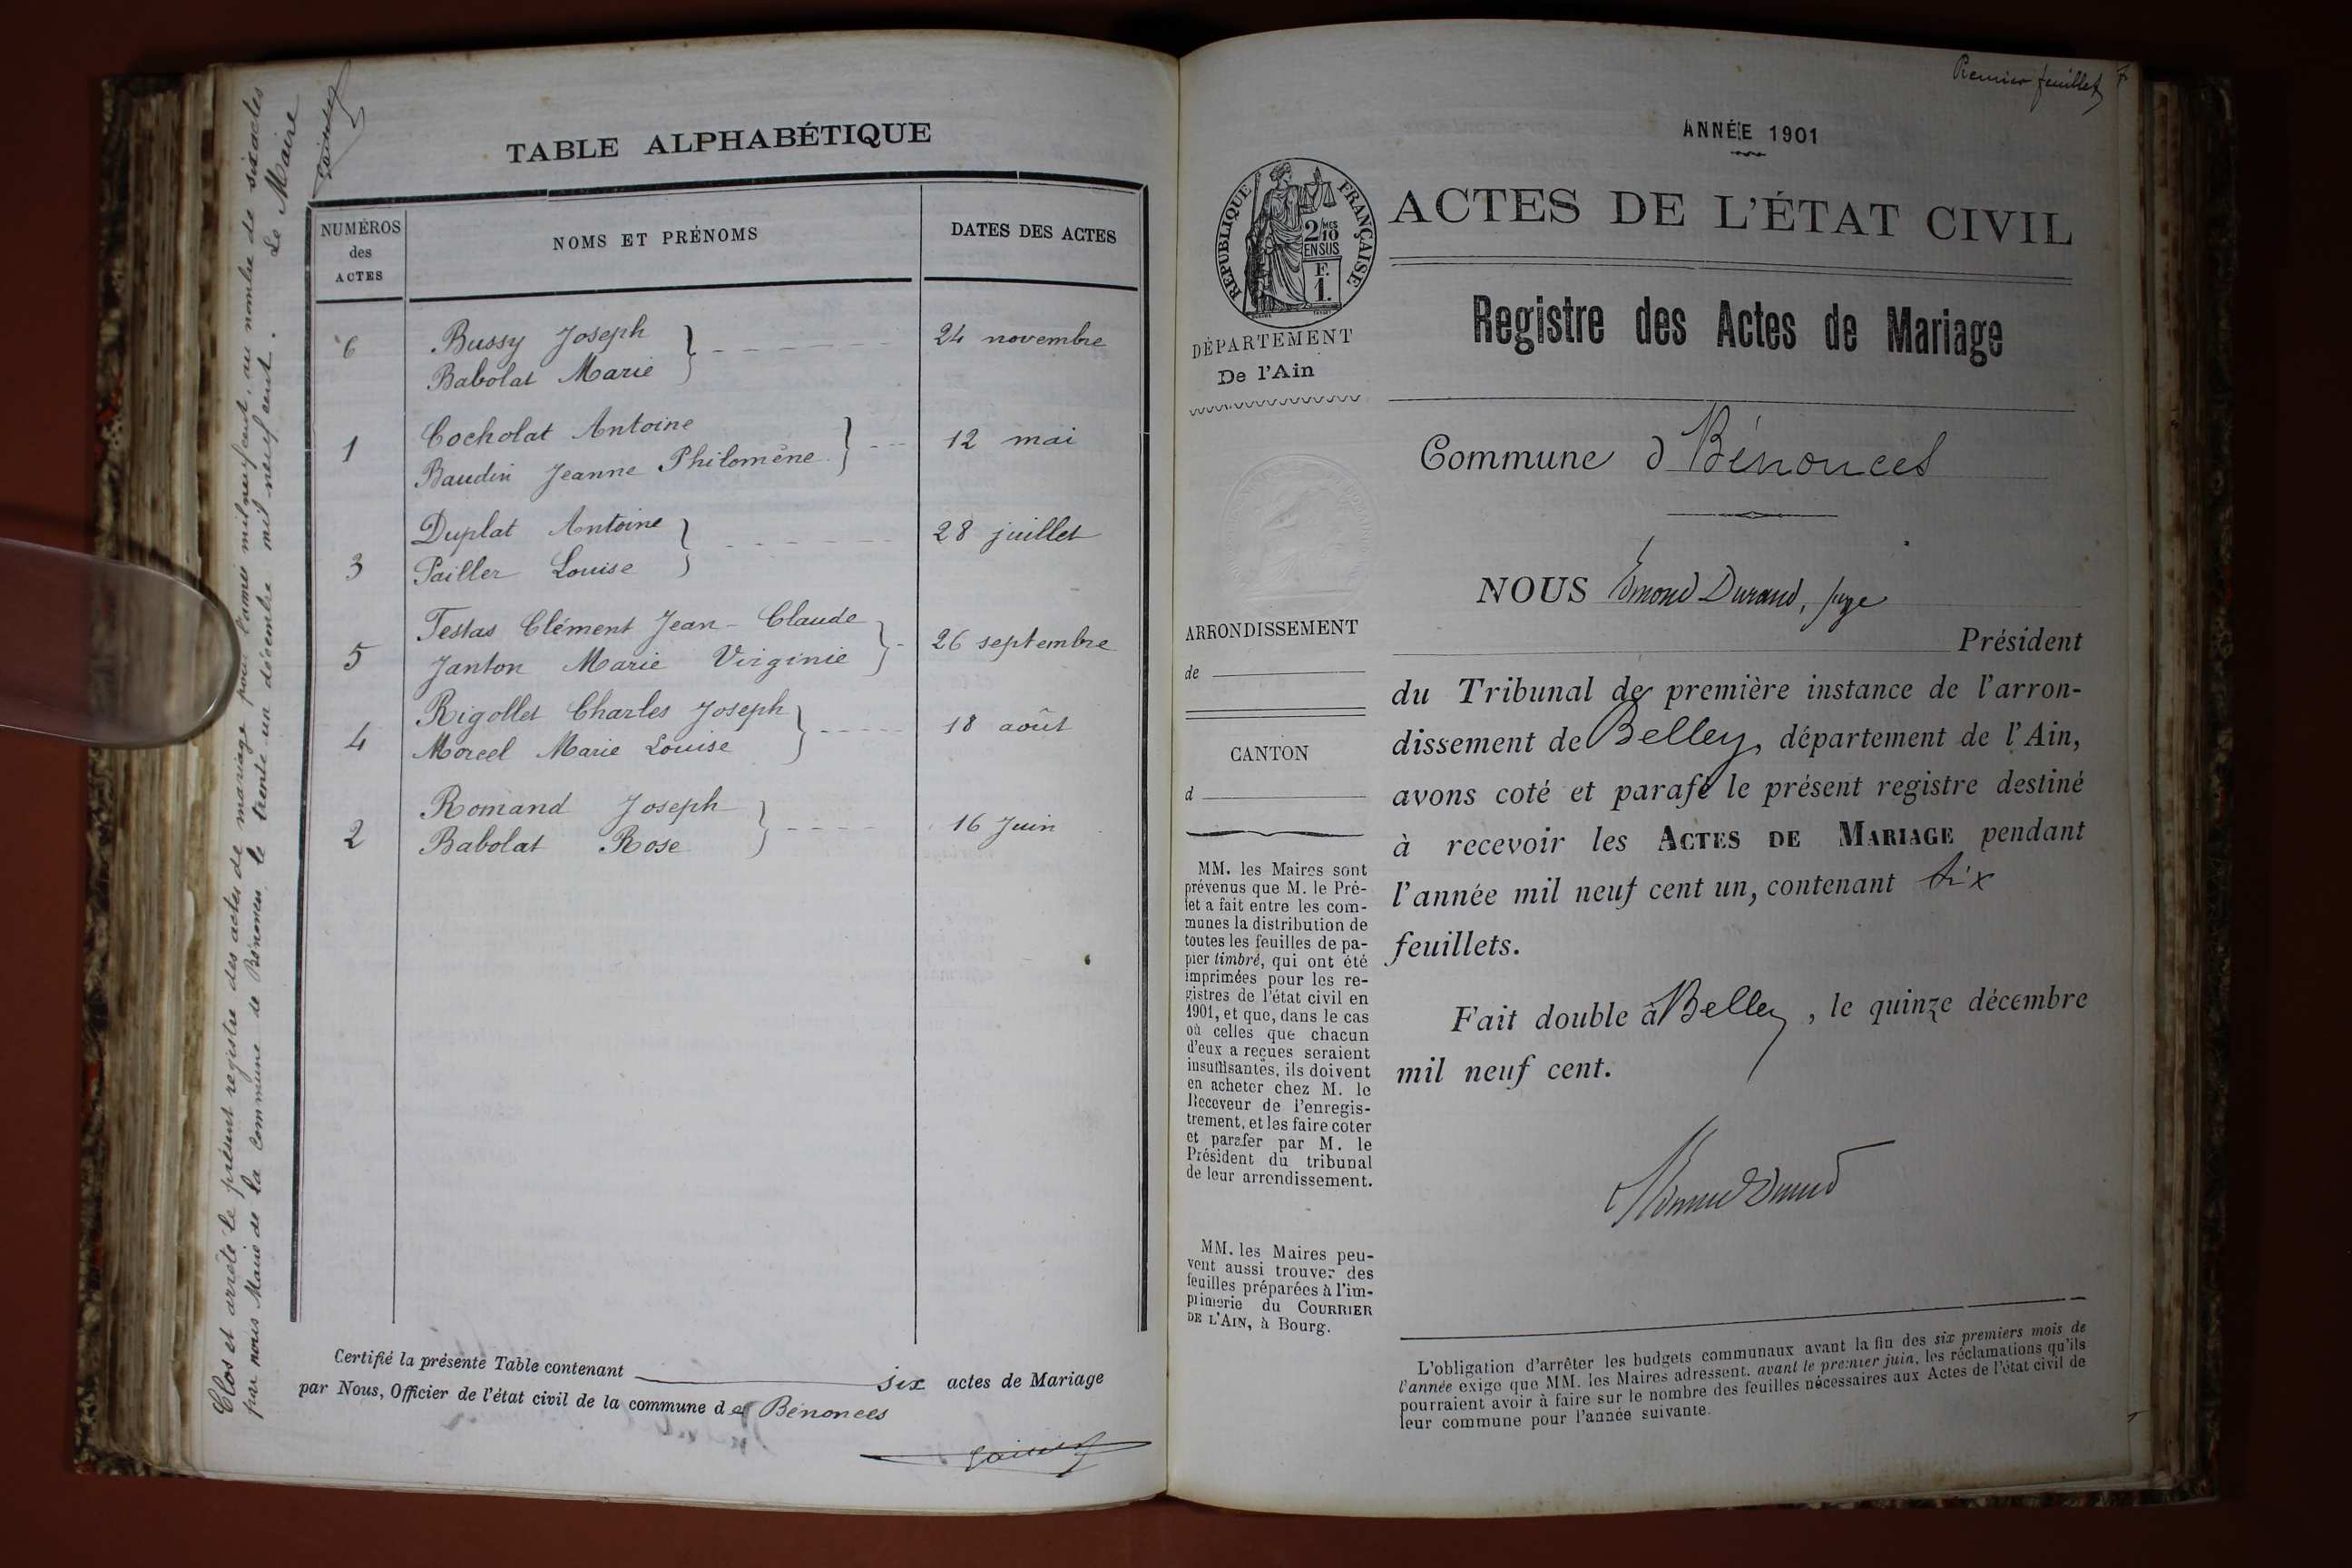 Clos et arrêté le présent registre des actes de mariage pour l'année mil neuf cent, au nombre de six actes
par nous Maire de la Commune de Bénonces le trente-un décembre mil neuf cent.
Le Maire
TABLE ALPHABÉTIQUE
NUMÉROS des ACTES
NOMS ET PRÉNOMS
DATES DES ACTES
6 Bussy Joseph
Babolat Marie 24 novembre
1 Cocholat Antoine
Baudin Jeanne Philomène 12 mai
3 Duplat Antoine
Pailler Louise 28 juillet
5 Testas Clément Jean-Claude
Janton Marie Virginie 26 septembre
4 Rigollet Charles Joseph
Morcel Marie Louise 18 août
2 Romand Joseph
Babolat Rose 16 Juin
Certifié la présente Table contenant six actes de Mariage
par Nous, Officier de l'état civil de la commune de Bénonces
Premier feuillet
ANNÉE 1901
RÉPUBLIQUE FRANÇAISE
2/10 MES
EN SUS
F.
1.
ACTES DE L'ÉTAT CIVIL
Registre des Actes de Mariage
DÉPARTEMENT
De l'Ain
Commune d Bénonces
NOUS Edmond Durand, juge
Président
du Tribunal de première instance de l'arron-
dissement de Belley, département de l'Ain,
avons coté et parafé le présent registre destiné
à recevoir les ACTES DE MARIAGE pendant
l'année mil neuf cent un, contenant six
feuillets.
Fait double à Belley, le quinze décembre
mil neuf cent.
ARRONDISSEMENT
de
CANTON
d
MM. les Maires sont
prévenus que M. le Pré-
fet a fait entre les com-
munes la distribution de
toutes les feuilles de pa-
pier timbré, qui ont été
imprimées pour les re-
gistres de l'état civil en
1901, et que, dans le cas
où celles que chacun
d'eux a reçues seraient
insuffisantes, ils doivent
en acheter chez M. le
Receveur de l'enregis-
trement, et les faire coter
et parafer par M. le
Président du tribunal
de leur arrondissement.
MM. les Maires peu-
vent aussi trouver des
feuilles préparées à l'im-
primerie du COURRIER
DE L'AIN, à Bourg.
L'obligation d'arrêter les budgets communaux avant la fin des six premiers mois de
l'année exige que MM. les Maires adressent, avant le premier juin, les réclamations qu'ils
pourraient avoir à faire sur le nombre des feuilles nécessaires aux Actes de l'état civil de
leur commune pour l'année suivante.